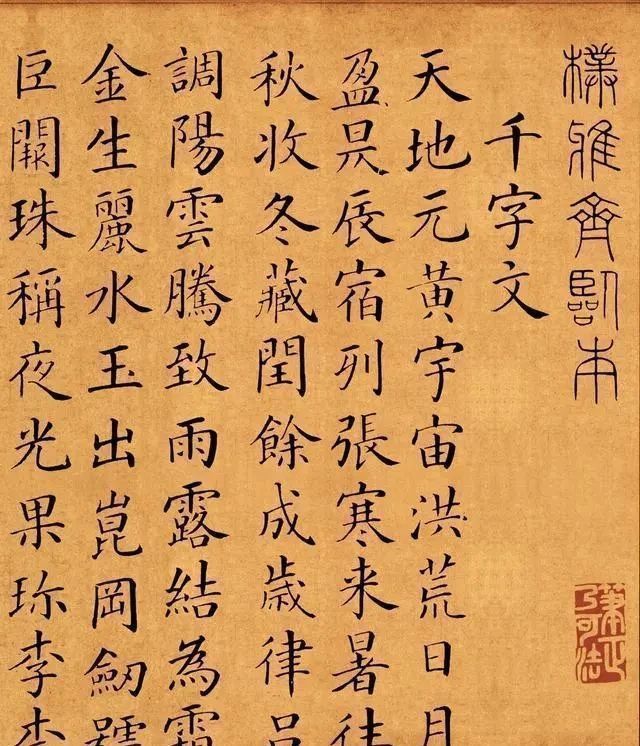 樸雅齋臨本
筆正乃可法
千字文
天地元黃宇宙洪荒日月
盈昃辰宿列張寒来暑往
秋收冬藏閏餘成歲律呂
調陽雲騰致雨露結為霜
金生麗水玉出崑岡劒號
巨闕珠稱夜光果珎李柰